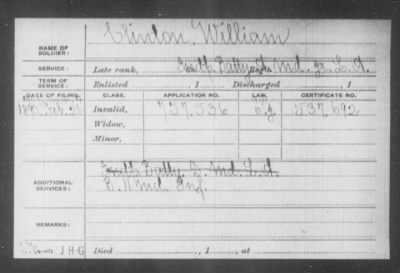 Clinton, William
NAME OF SOLDIER:
SERVICE: Late rank, Batty Ind. L. A.
TERM OF SERVICE: Enlisted , 1 Discharged , 1
DATE OF FILING. CLASS. APPLICATION NO. LAW. CERTIFICATE NO.
Invalid, 757.536 537.692
Widow,
Minor,
ADDITIONAL SERVICES: Batty. Ind. L. A.
Ind. Inf.
REMARKS:
J H G Died , 1 , at